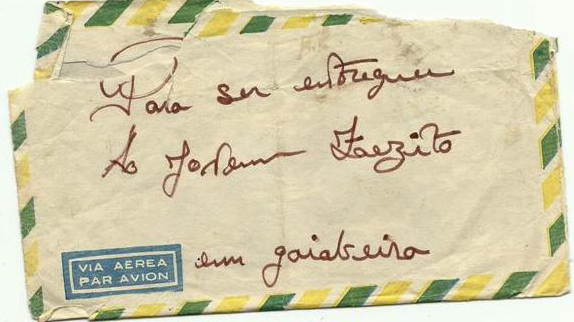 Para ser entreguer
Ao Jovem Zaezito
em goiabeira
VIA AEREA
PAR AVION